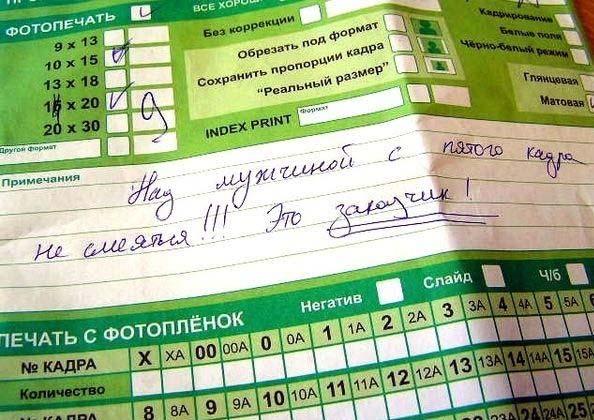 ФОТОПЕЧАТЬ
9 x 13
10 x 15
13 x 18
20
20 x 30
Другой формат
9
Без коррекции
Обрезать под формат
Сохранить пропорции кадра
"Реальный размер"
INDEX PRINT
Формат
ВСЕ
Кадрирование
Белые поля
Чёрно-белый режим
Глянцевая
Матовая
Примечания
Над мужчиной с пятого кадра
не смеяться!!! Это заказчик!
ПЕЧАТЬ С ФОТОПЛЁНОК
Негатив
Слайд
Ч/б
№ КАДРА X XA 00 00A 0 0A 1 1A 2 2A 3 3A 4 4A 5 5A 6
Количество
№ КАДРА 8 8A 9 9A 10 10A 11 11A 12 12A 13 13A 14 14A 15 15A
Количество